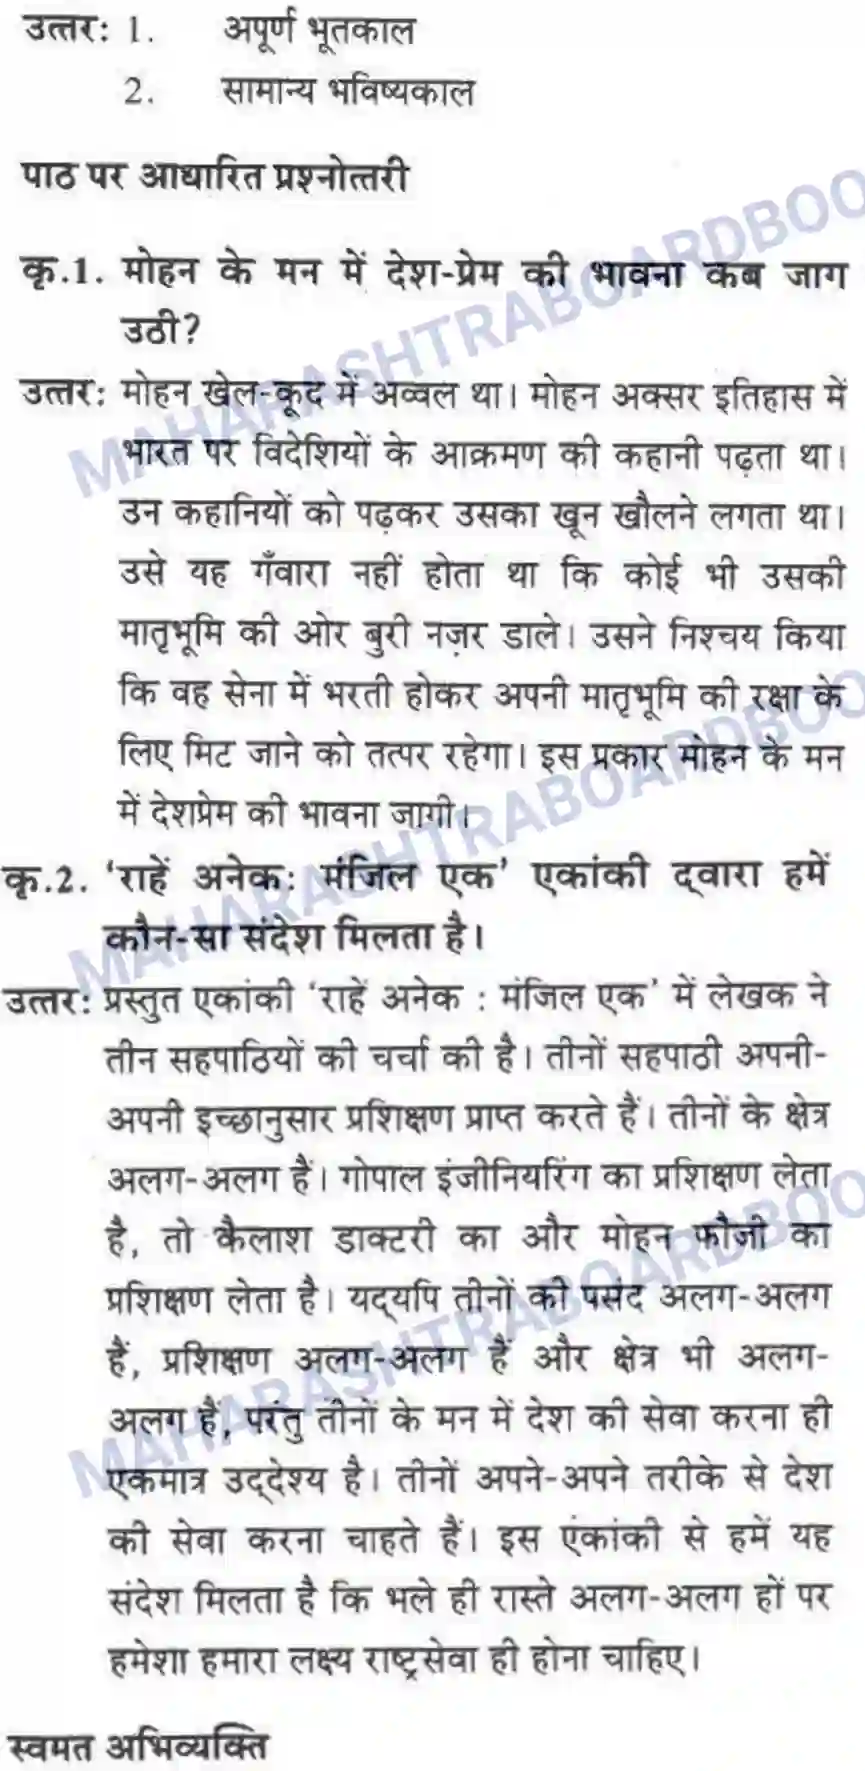 उत्तर: 1. अपूर्ण भूतकाल
2. सामान्य भविष्यकाल
पाठ पर आधारित प्रश्नोत्तरी
कृ.1. मोहन के मन में देश-प्रेम की भावना कब जाग
उठी?
उत्तर: मोहन खेल-कूद में अव्वल था। मोहन अक्सर इतिहास में
भारत पर विदेशियों के आक्रमण की कहानी पढ़ता था।
उन कहानियों को पढ़कर उसका खून खौलने लगता था।
उसे यह गँवारा नहीं होता था कि कोई भी उसकी
मातृभूमि की ओर बुरी नज़र डाले। उसने निश्चय किया
कि वह सेना में भरती होकर अपनी मातृभूमि की रक्षा के
लिए मिट जाने को तत्पर रहेगा। इस प्रकार मोहन के मन
में देशप्रेम की भावना जागी।
कृ.2. 'राहें अनेक: मंजिल एक' एकांकी द्‌वारा हमें
कौन-सा संदेश मिलता है।
उत्तर: प्रस्तुत एकांकी 'राहें अनेक : मंजिल एक' में लेखक ने
तीन सहपाठियों की चर्चा की है। तीनों सहपाठी अपनी-
अपनी इच्छानुसार प्रशिक्षण प्राप्त करते हैं। तीनों के क्षेत्र
अलग-अलग हैं। गोपाल इंजीनियरिंग का प्रशिक्षण लेता
है, तो कैलाश डाक्टरी का और मोहन फौजी का
प्रशिक्षण लेता है। यद्‌यपि तीनों की पसंद अलग-अलग
हैं, प्रशिक्षण अलग-अलग हैं और क्षेत्र भी अलग-
अलग हैं, परंतु तीनों के मन में देश की सेवा करना ही
एकमात्र उद्‌देश्य है। तीनों अपने-अपने तरीके से देश
की सेवा करना चाहते हैं। इस एंकांकी से हमें यह
संदेश मिलता है कि भले ही रास्ते अलग-अलग हों पर
हमेशा हमारा लक्ष्य राष्ट्रसेवा ही होना चाहिए।
स्वमत अभिव्यक्ति
MAHARASHTRABOARDBOO
MAHARASHTRABOARDBOO
MAHARASHTRABOARDBOO